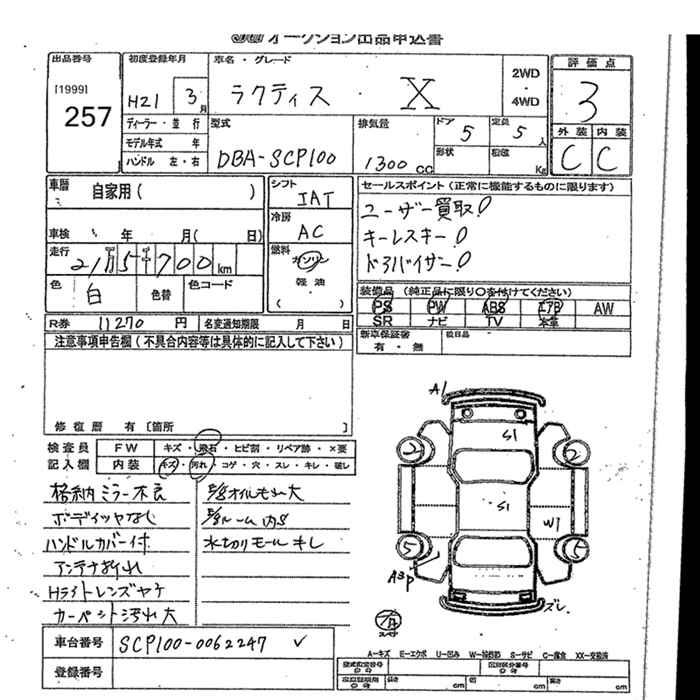 オークション出品申込書
出品番号 初度登録年月 車名・グレード 評価点
[1999] 257
H21 3月 ラクティス X 2WD・4WD 3
外装 内装
C C
ディーラー・並行 型式 排気量 ドア 5 定員 5人
モデル年式 年 DBA-SCP100 1300cc 形状 Kg
ハンドル 左・右
車暦 自家用( ) シフト IAT セールスポイント(正常に機能するものに限ります)
冷房 AC ユーザー買取!
車検 年 月( 日) キーレスキー!
走行 21万5千700km 燃料 ガソリン ドアバイザー!
軽油
( )
色 白 色替 色コード
装備品(純正品に限り○を付けてください)
PS PW ABS エアB AW
SR ナビ TV 本革
R券 11270円 名変通知期限 月 日
新車保証書 後日品
有・無
注意事項申告欄(不具合内容等は具体的に記入して下さい)
修復暦 有 [箇所 ]
検査員記入欄 FW キズ・飛石・ヒビ割・リペア跡・×要
内装 キズ・汚れ・コゲ・穴・スレ・キレ・破レ
格納ミラー不良
ハンドルカバー付
アンテナ折れ
Hライトレンズヤケ
カーペット汚れ大
水切りモールキレ
A1
S1
2 2
S1
W1
5 5
A3P
ズレ
スペア
車台番号 SCP100-0062247 ✓
登録番号
A-キズ E-エクボ U-凹み S-サビ C-腐食 XX-交換済
長さ cm 幅 cm 高さ cm